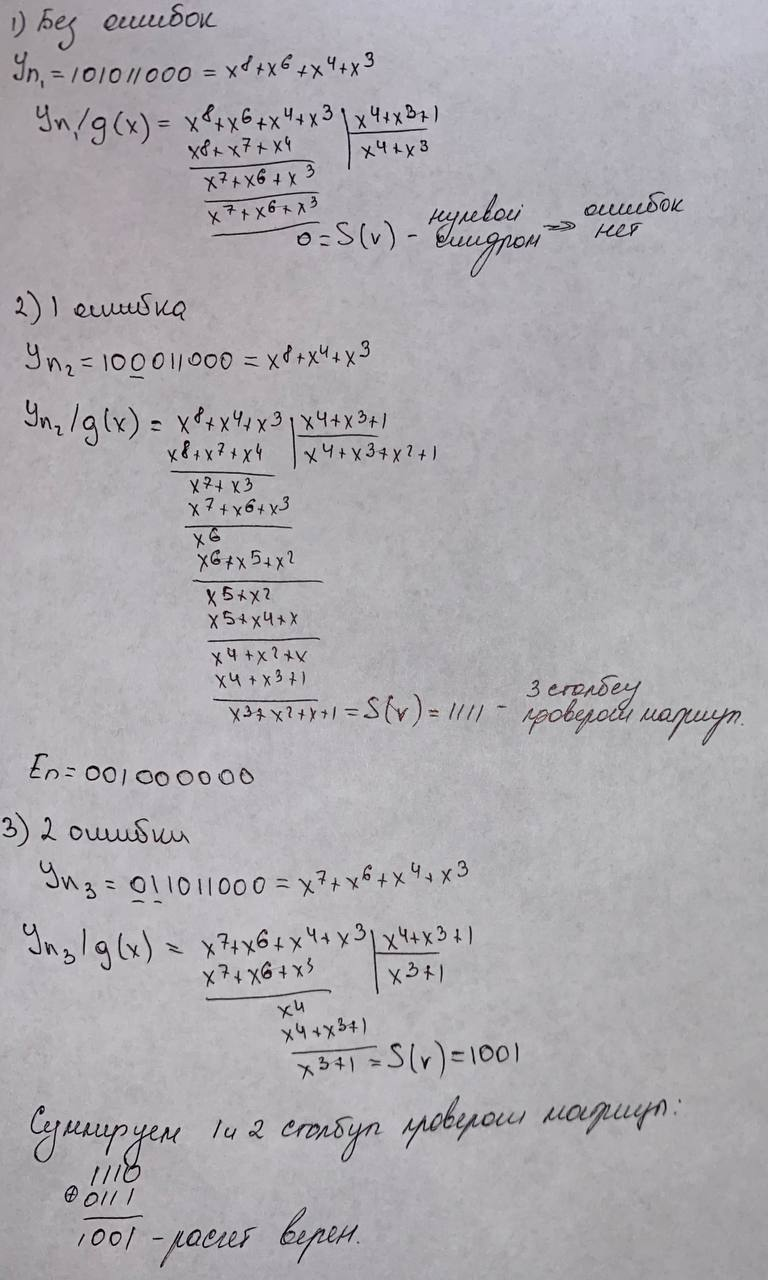 1) Без ошибок
Yn₁ = 101011000 = x⁸+x⁶+x⁴+x³
Yn₁/g(x) = x⁸+x⁶+x⁴+x³ | x⁴+x³+1
x⁸+x⁷+x⁴ | x⁴+x³
x⁷+x⁶+x³
x⁷+x⁶+x³
0 = S(v) – нулевой синдром => ошибок нет
2) 1 ошибка
Yn₂ = 100011000 = x⁸+x⁴+x³
Yn₂/g(x) = x⁸+x⁴+x³ | x⁴+x³+1
x⁸+x⁷+x⁴ | x⁴+x³+x²+1
x⁷+x³
x⁷+x⁶+x³
x⁶
x⁶+x⁵+x²
x⁵+x²
x⁵+x⁴+x
x⁴+x²+x
x⁴+x³+1
x³+x²+x+1 = S(v) = 1111 – 3 столбец проверочн матрицы.
En = 001000000
3) 2 ошибки
Yn₃ = 011011000 = x⁷+x⁶+x⁴+x³
Yn₃/g(x) = x⁷+x⁶+x⁴+x³ | x⁴+x³+1
x⁷+x⁶+x³ | x³+1
x⁴
x⁴+x³+1
x³+1 = S(v) = 1001
Суммируем 1 и 2 столбцы проверочн матрицы:
1110
⊕ 0111
1001 – расчет верен.